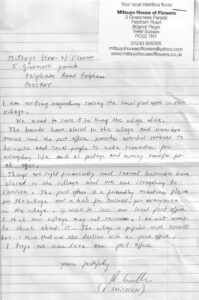 Your local Interflora florist
Mitsuyo House of Flowers
5 Grosvenor Parade
Felpham Road
Bognor Regis
West Sussex
PO22 7NT
01243 855085
mitsuyohouseofflowers@yahoo.com
www.mitsuyohouseofflowers.co.uk
Mitsuyo House of Flowers
5 Grosvenor parade
Felpham Road Felpham
PO22 7NT
I am writing regarding saving the local post office in our
village.
We need to save it to keep the village alive.
The banks have closed in the village and
means and the post office provides essential services to
business and local people to make transactions for
everyday life such as postage and money transfer for
all ages.
Things are tight financially and several business have
closed in the village and we are struggling to
continue. The post office is a friendly meeting place
for the village and a hub for business, for everyone
in the village. If we were to lose our local post office
I think our village may not recover, I do not want
to think about it. The village is popular with tourists
but I fear that will also decline with no post office.
I hope we can keep our post office
yours faithfully